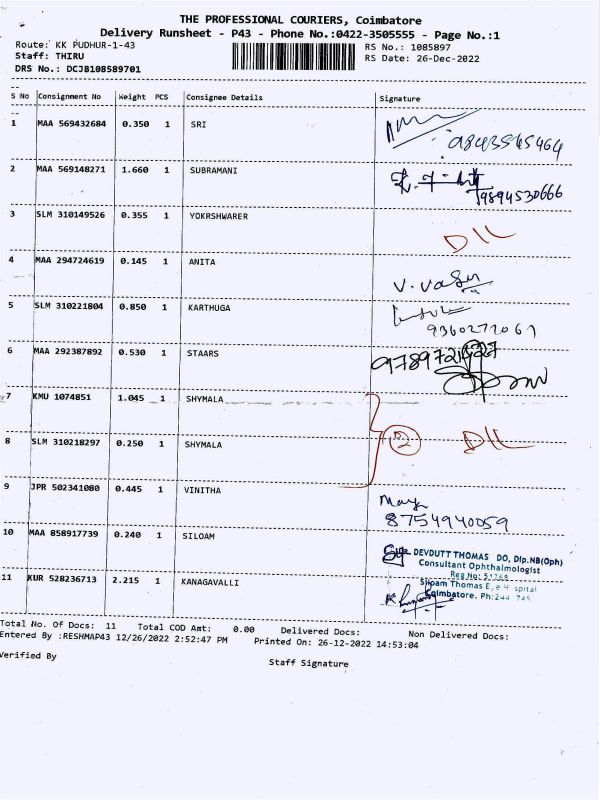 THE PROFESSIONAL COURIERS, Coimbatore
Delivery Runsheet - P43 - Phone No.:0422-3505555 - Page No.:1
Route: KK PUDHUR-1-43 RS No.: 1085897
Staff: THIRU RS Date: 26-Dec-2022
DRS No.: DCJB108589701
S No Consignment No Weight PCS Consignee Details Signature
1 MAA 569432684 0.350 1 SRI
9843545464
2 MAA 569148271 1.660 1 SUBRAMANI
9894530666
3 SLM 310149526 0.355 1 YOKRSHWARER
DLL
4 MAA 294724619 0.145 1 ANITA
V. Vasu
5 SLM 310221804 0.850 1 KARTHUGA
9360277061
6 MAA 292387892 0.530 1 STAARS
7 KMU 1074851 1.045 1 SHYMALA
2 DLL
8 SLM 310218297 0.250 1 SHYMALA
9 JPR 502341080 0.445 1 VINITHA
8754940059
10 MAA 858917739 0.240 1 SILOAM
DEVDUTT THOMAS DO, Dip.NB(Oph)
Consultant Ophthalmologist
Reg No:
11 KUR 528236713 2.215 1 KANAGAVALLI
Siloam Thomas Eye Hospital
Coimbatore. Ph:
Total No. Of Docs: 11 Total COD Amt: 0.00 Delivered Docs: Non Delivered Docs:
Entered By :RESHMAP43 12/26/2022 2:52:47 PM Printed On: 26-12-2022 14:53:04
Verified By
Staff Signature